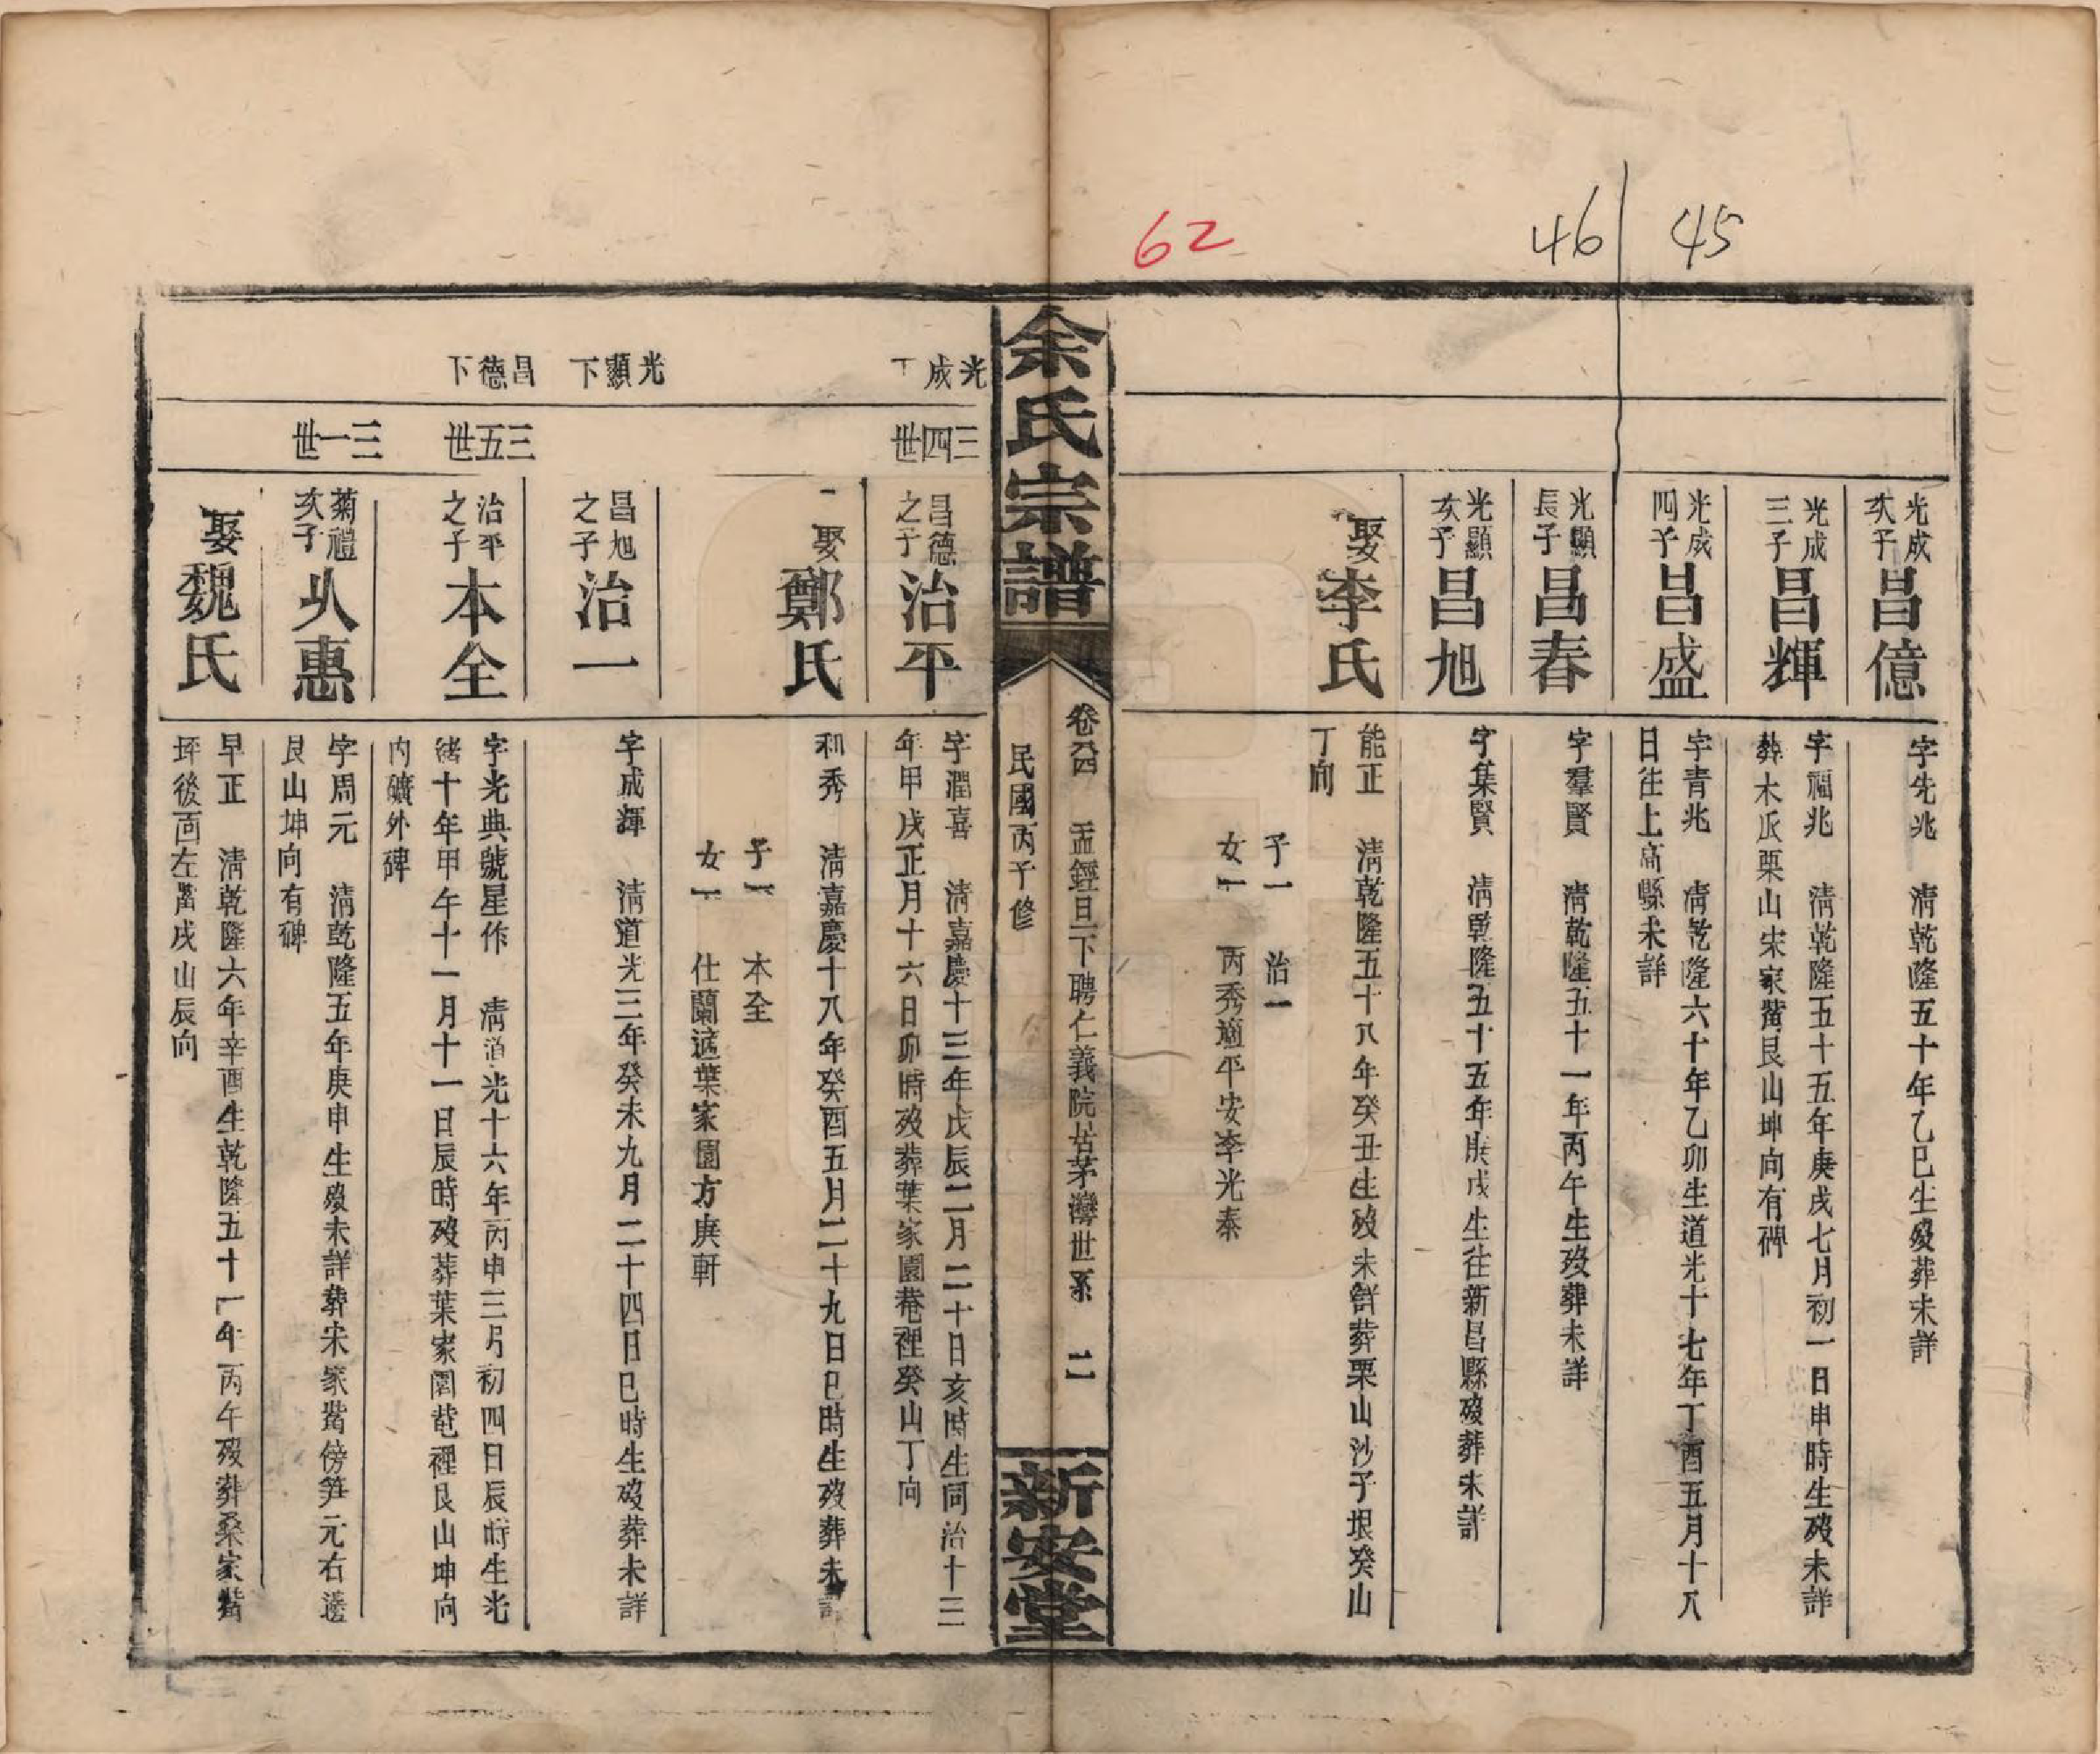 45
46
62
光成次子昌億
字先兆 清乾隆五十年乙巳生歿葬未詳
光成三子昌輝
字福兆 清乾隆五十五年庚戌七月初一日申時生歿未詳
葬木瓜栗山宋家嘴艮山坤向有碑
光成四子昌盛
字青兆 清乾隆六十年乙卯生道光十七年丁酉五月十八
日往上高縣未詳
光顯長子昌春
字羣賢 清乾隆五十一年丙午生歿葬未詳
光顯次子昌旭
字集賢 清乾隆五十五年庚戌生往新昌縣歿葬未詳
娶李氏
能正 清乾隆五十八年癸丑生歿未詳葬栗山沙子垠癸山
丁向
子一 治一
女一 丙秀適平安李光泰
余氏宗譜
卷 孟鋞旦下聘仁義院茅灣世系 二
民國丙子修
新安堂
光成下
三四世
昌德之子治平
字潤喜 清嘉慶十三年戊辰二月二十日亥時生同治十三
年甲戌正月十六日卯時歿葬葉家園菴裡癸山丁向
娶鄭氏
和秀 清嘉慶十八年癸酉五月二十九日巳時生歿葬未詳
子一 本全
女一 仕蘭適葉家園方庚軒
光顯下
昌旭之子治一
字成輝 清道光三年癸未九月二十四日巳時生歿葬未詳
昌德下
三五世
治平之子本全
字光典號星作 清道光十六年丙申三月初四日辰時生光
緒十年甲午十一月十一日辰時歿葬葉家園菴裡艮山坤向
內礦外碑
三一世
菊禮次子以惠
字周元 清乾隆五年庚申生歿未詳葬宋家嘴傍笋元右邊
艮山坤向有碑
娶魏氏
早正 清乾隆六年辛酉生乾隆五十一年丙午歿葬桑家嘴
坪後面左嘴戌山辰向